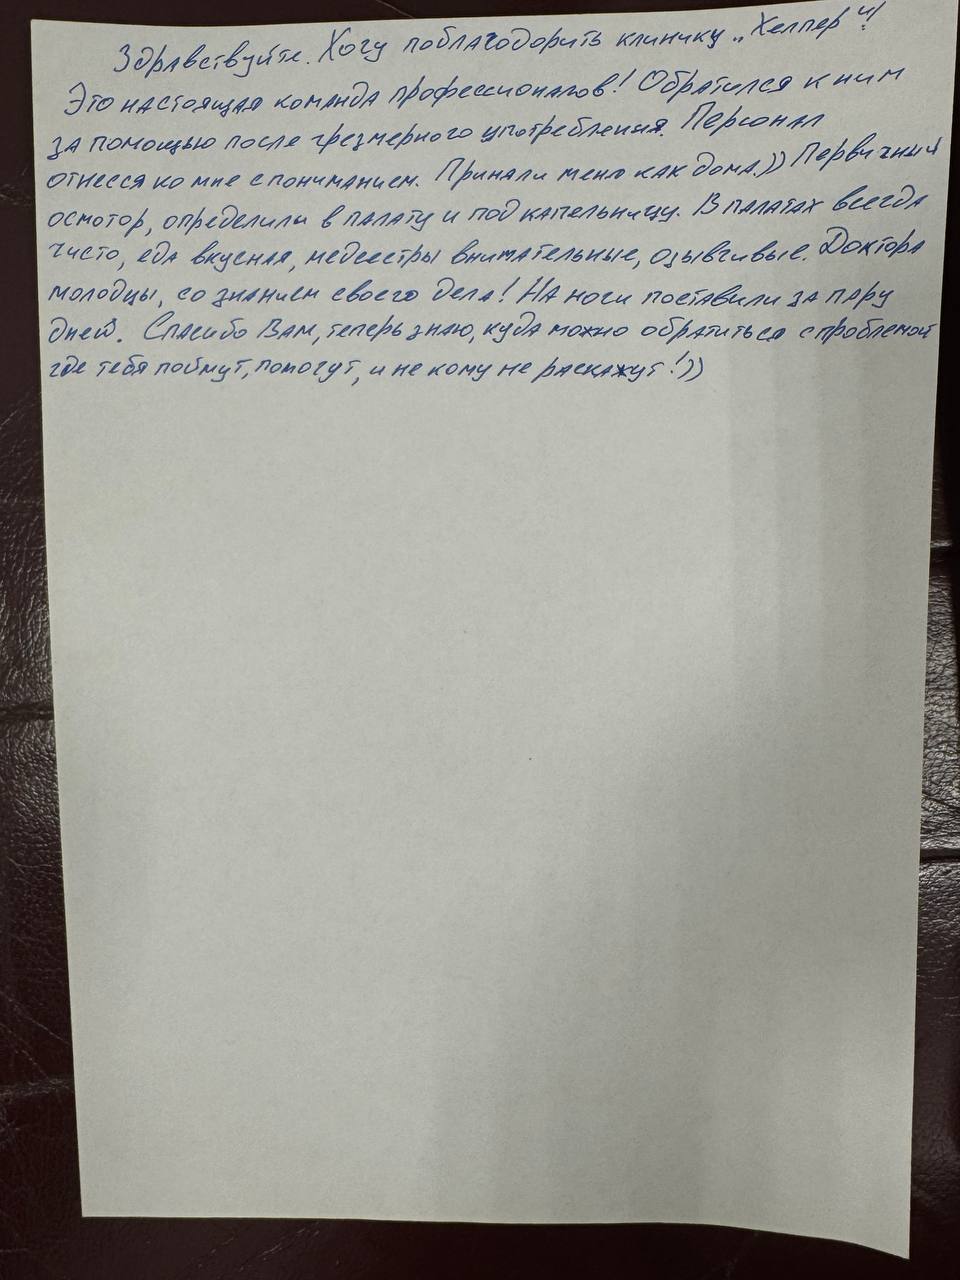 Здравствуйте. Хочу поблагодорить клинику „Хелпер“!
Это настоящая команда профессионалов! Обратился к ним
за помощью после чрезмерного употребления. Персонал
отнесся ко мне с пониманием. Принали меня как дома.)) Первичный
осмотор, определили в палату и под капельницу. В палатах всегда
чисто, еда вкусная, медсестры внимательные, озывчивые. Доктора
молодцы, со знанием своего дела! На ноги поставили за пару
дней. Спасибо Вам, теперь знаю, куда можно обратиться с проблемой
где тебя поймут, помогут, и не кому не раскажут!))